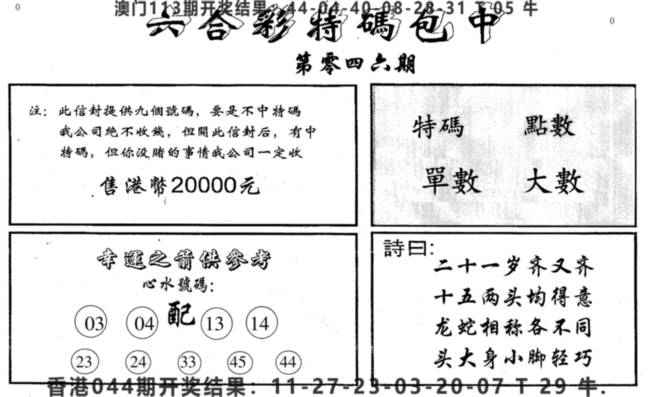 澳门113期开奖结果：44-04-40-08-28-31 T 05 牛
0
六合彩特碼包中
0
第零四六期
注：此信封提供九個號碼，要是不中特碼
我公司绝不收錢，但開此信封后，有中
特碼，但你没賭的事情我公司一定收
售港幣20000元
特碼 點數
單數 大數
幸運之箭供參考
心水號碼：
03 04 配 13 14
23 24 33 45 44
詩曰：
二十一岁齐又齐
十五两头均得意
龙蛇相称各不同
头大身小脚轻巧
香港044期开奖结果：11-27-23-03-20-07 T 29 牛.